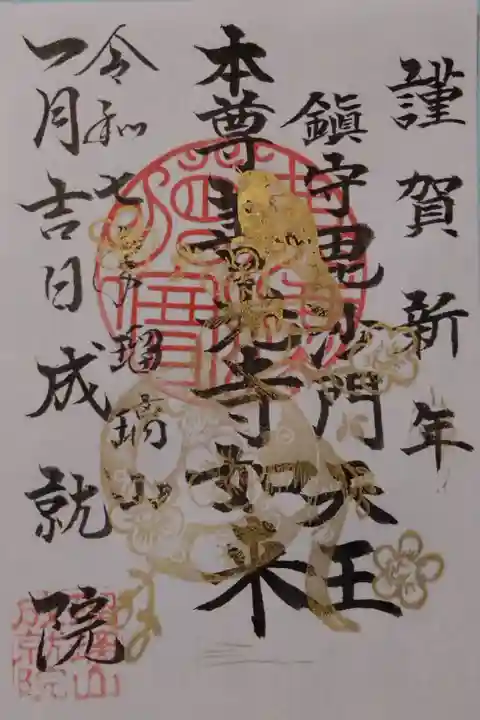 謹賀新年
鎮守毘沙門天王
本尊善光寺如来
令和七年瑠璃山
一月吉日成就院